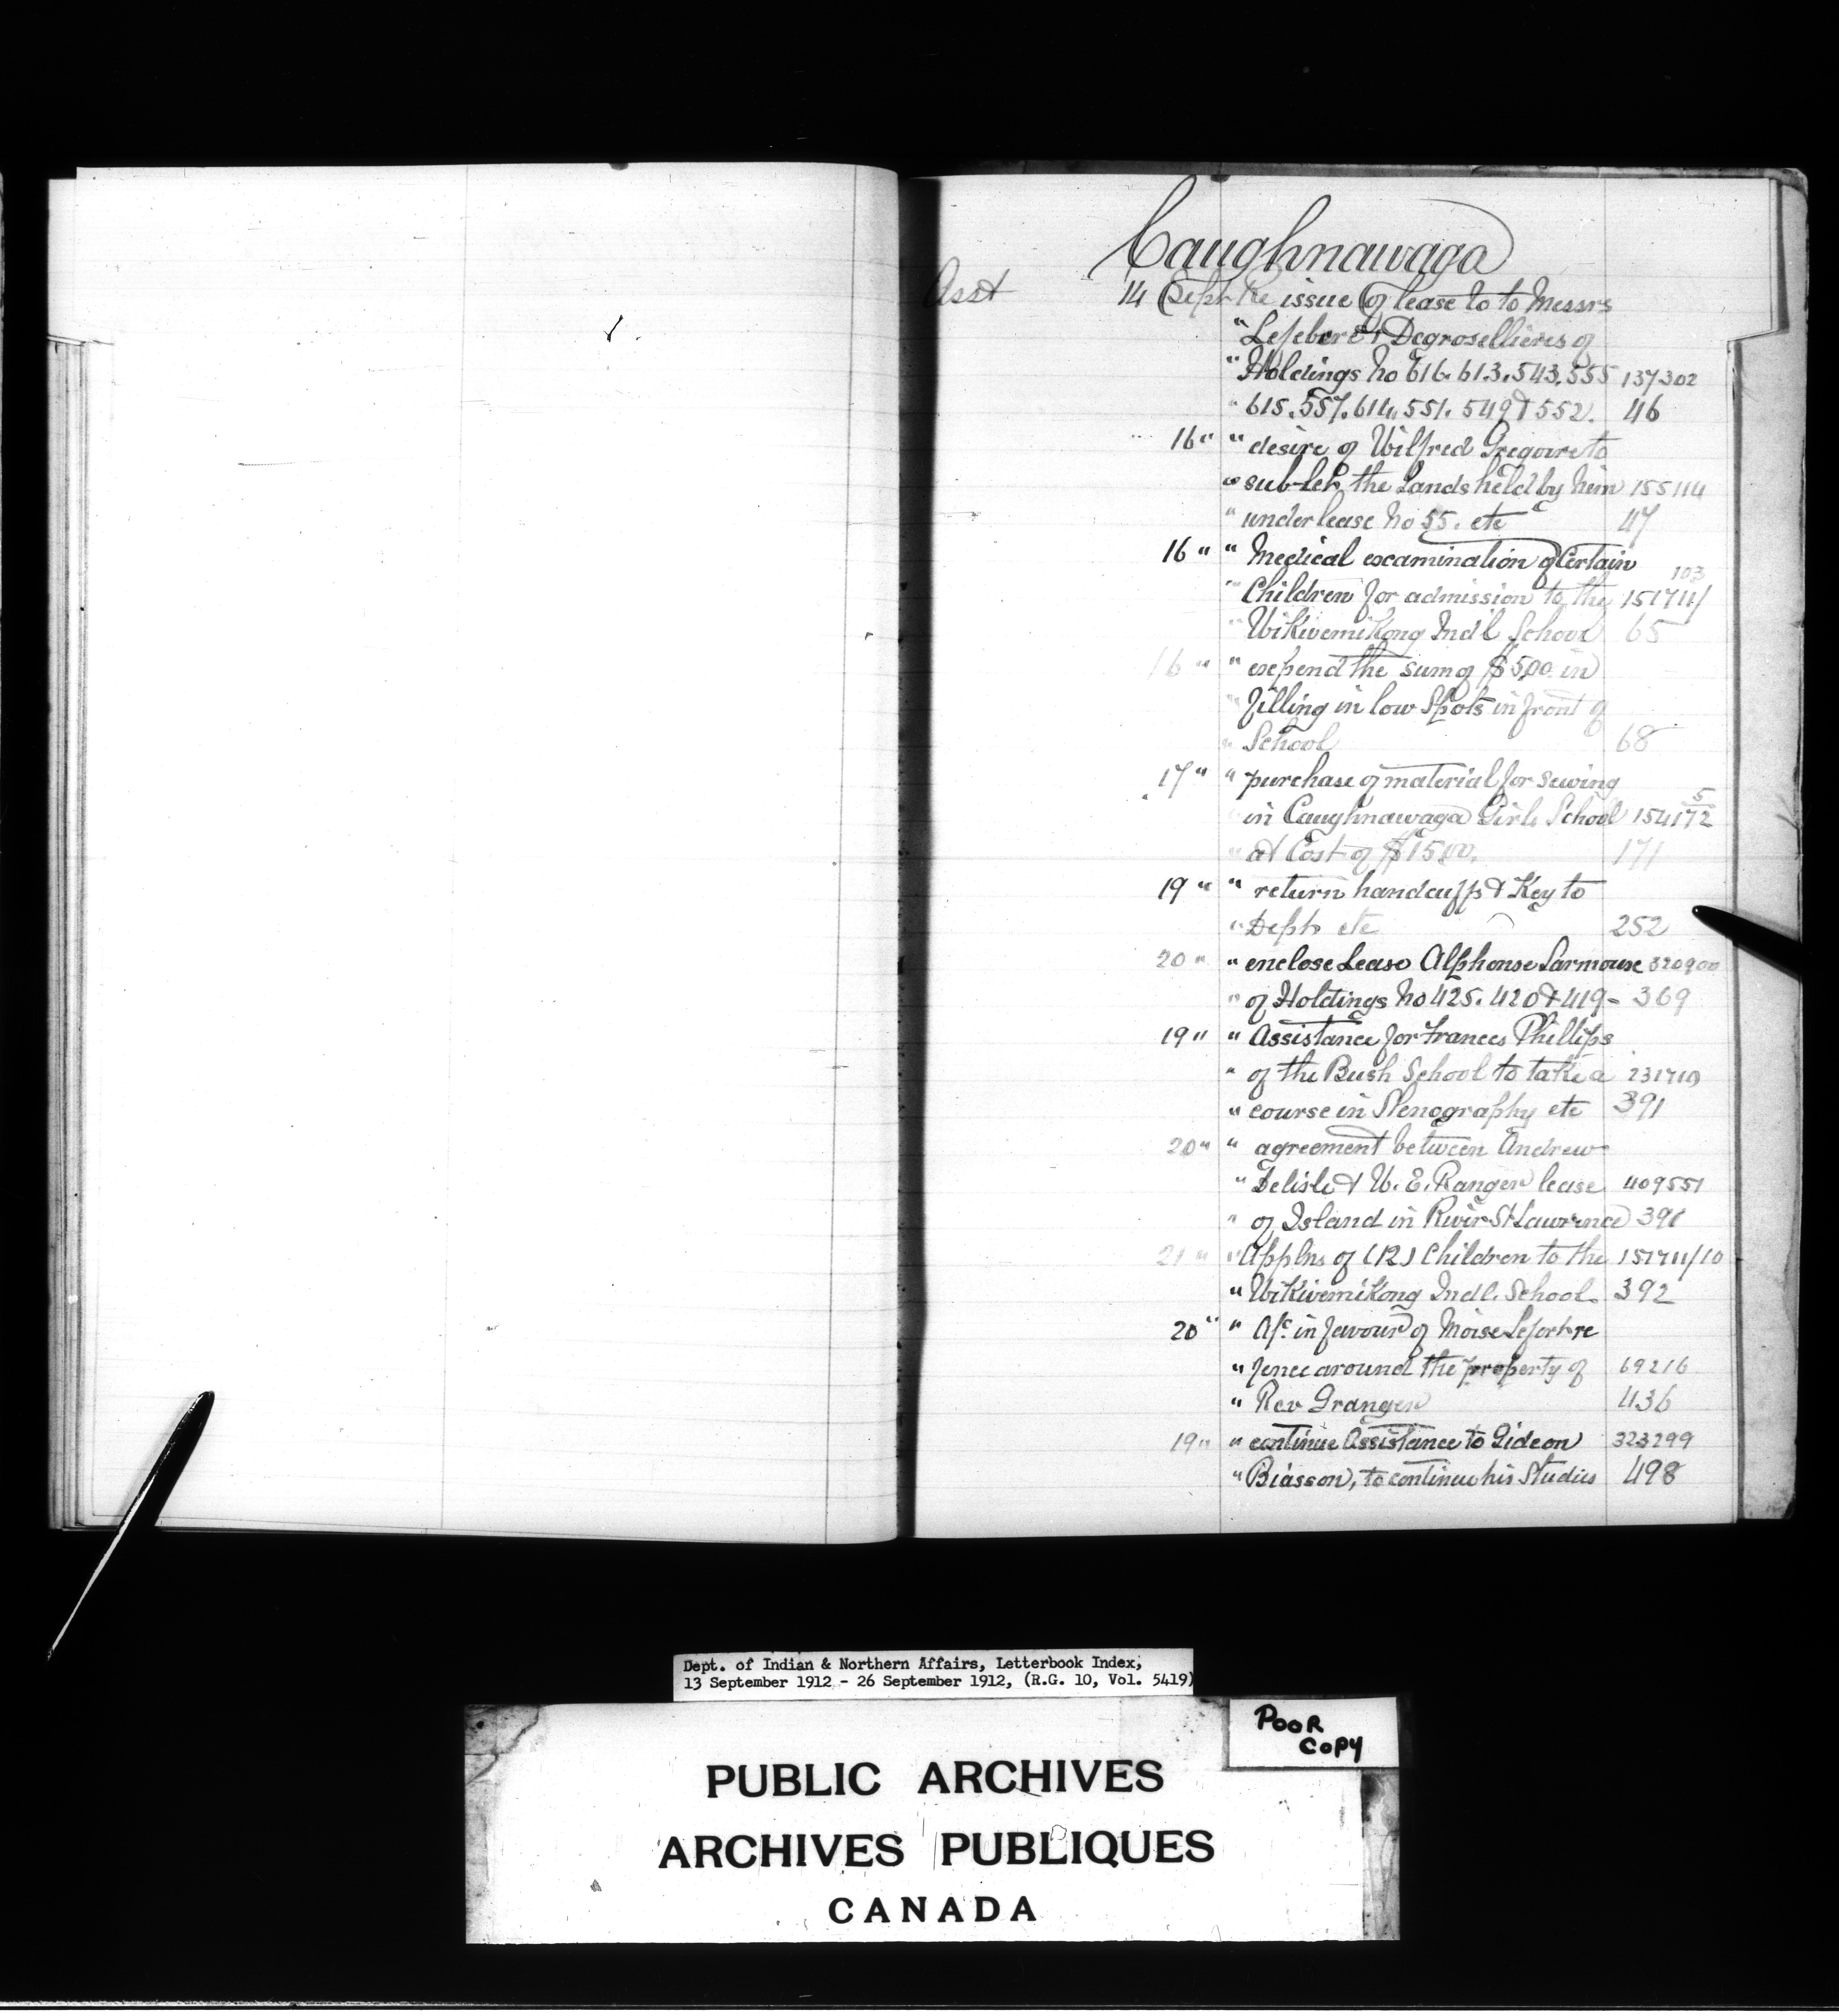 Caughnawaga
Asst 14 Sept Re issue of lease to to Messrs
" Lefebvre & Degrosellieres of
" Holdings No 616. 613. 543. 555 137302
" 615. 557. 614. 551. 549 & 552. 46
16 " " desire of Wilfred Gregoire to
" sub-let the Lands held by him 155114
" under lease No 55. etc 47
16 " " Medical examination of Certain
" Children for admission to the 151711/103
" Wikwemikong Ind'l School 65
16 " " expend the sum of $5.00 in
" filling in low Spots in front of
" School 68
17 " " purchase of material for sewing
in Caughnawaga Girls School 154172/5
" at Cost of $15.00. 171
19 " " return handcuffs & Key to
" Dept etc 252
20 " " enclose Lease Alphonse Larmouse 320900
" of Holdings No 425. 420 & 419 - 369
19 " " Assistance for Frances Phillips
" of the Bush School to take a 231710
" course in Stenography etc 391
20 " " agreement between Andrew
" Delisle & W. E. Ranger lease 409551
" of Island in River St Lawrence 391
21 " " Applns of (12) Children to the 151711/10
" Wikwemikong Indl. School. 392
20 " " A/c. in favour of Moise Lefort re
" fence around the property of 69216
" Rev Granger 436
19 " " continue Assistance to Gideon 323299
" Biasson, to continue his Studies 498
Dept. of Indian & Northern Affairs, Letterbook Index,
13 September 1912 - 26 September 1912, (R.G. 10, Vol. 5419)
POOR
COPY
PUBLIC ARCHIVES
ARCHIVES PUBLIQUES
CANADA